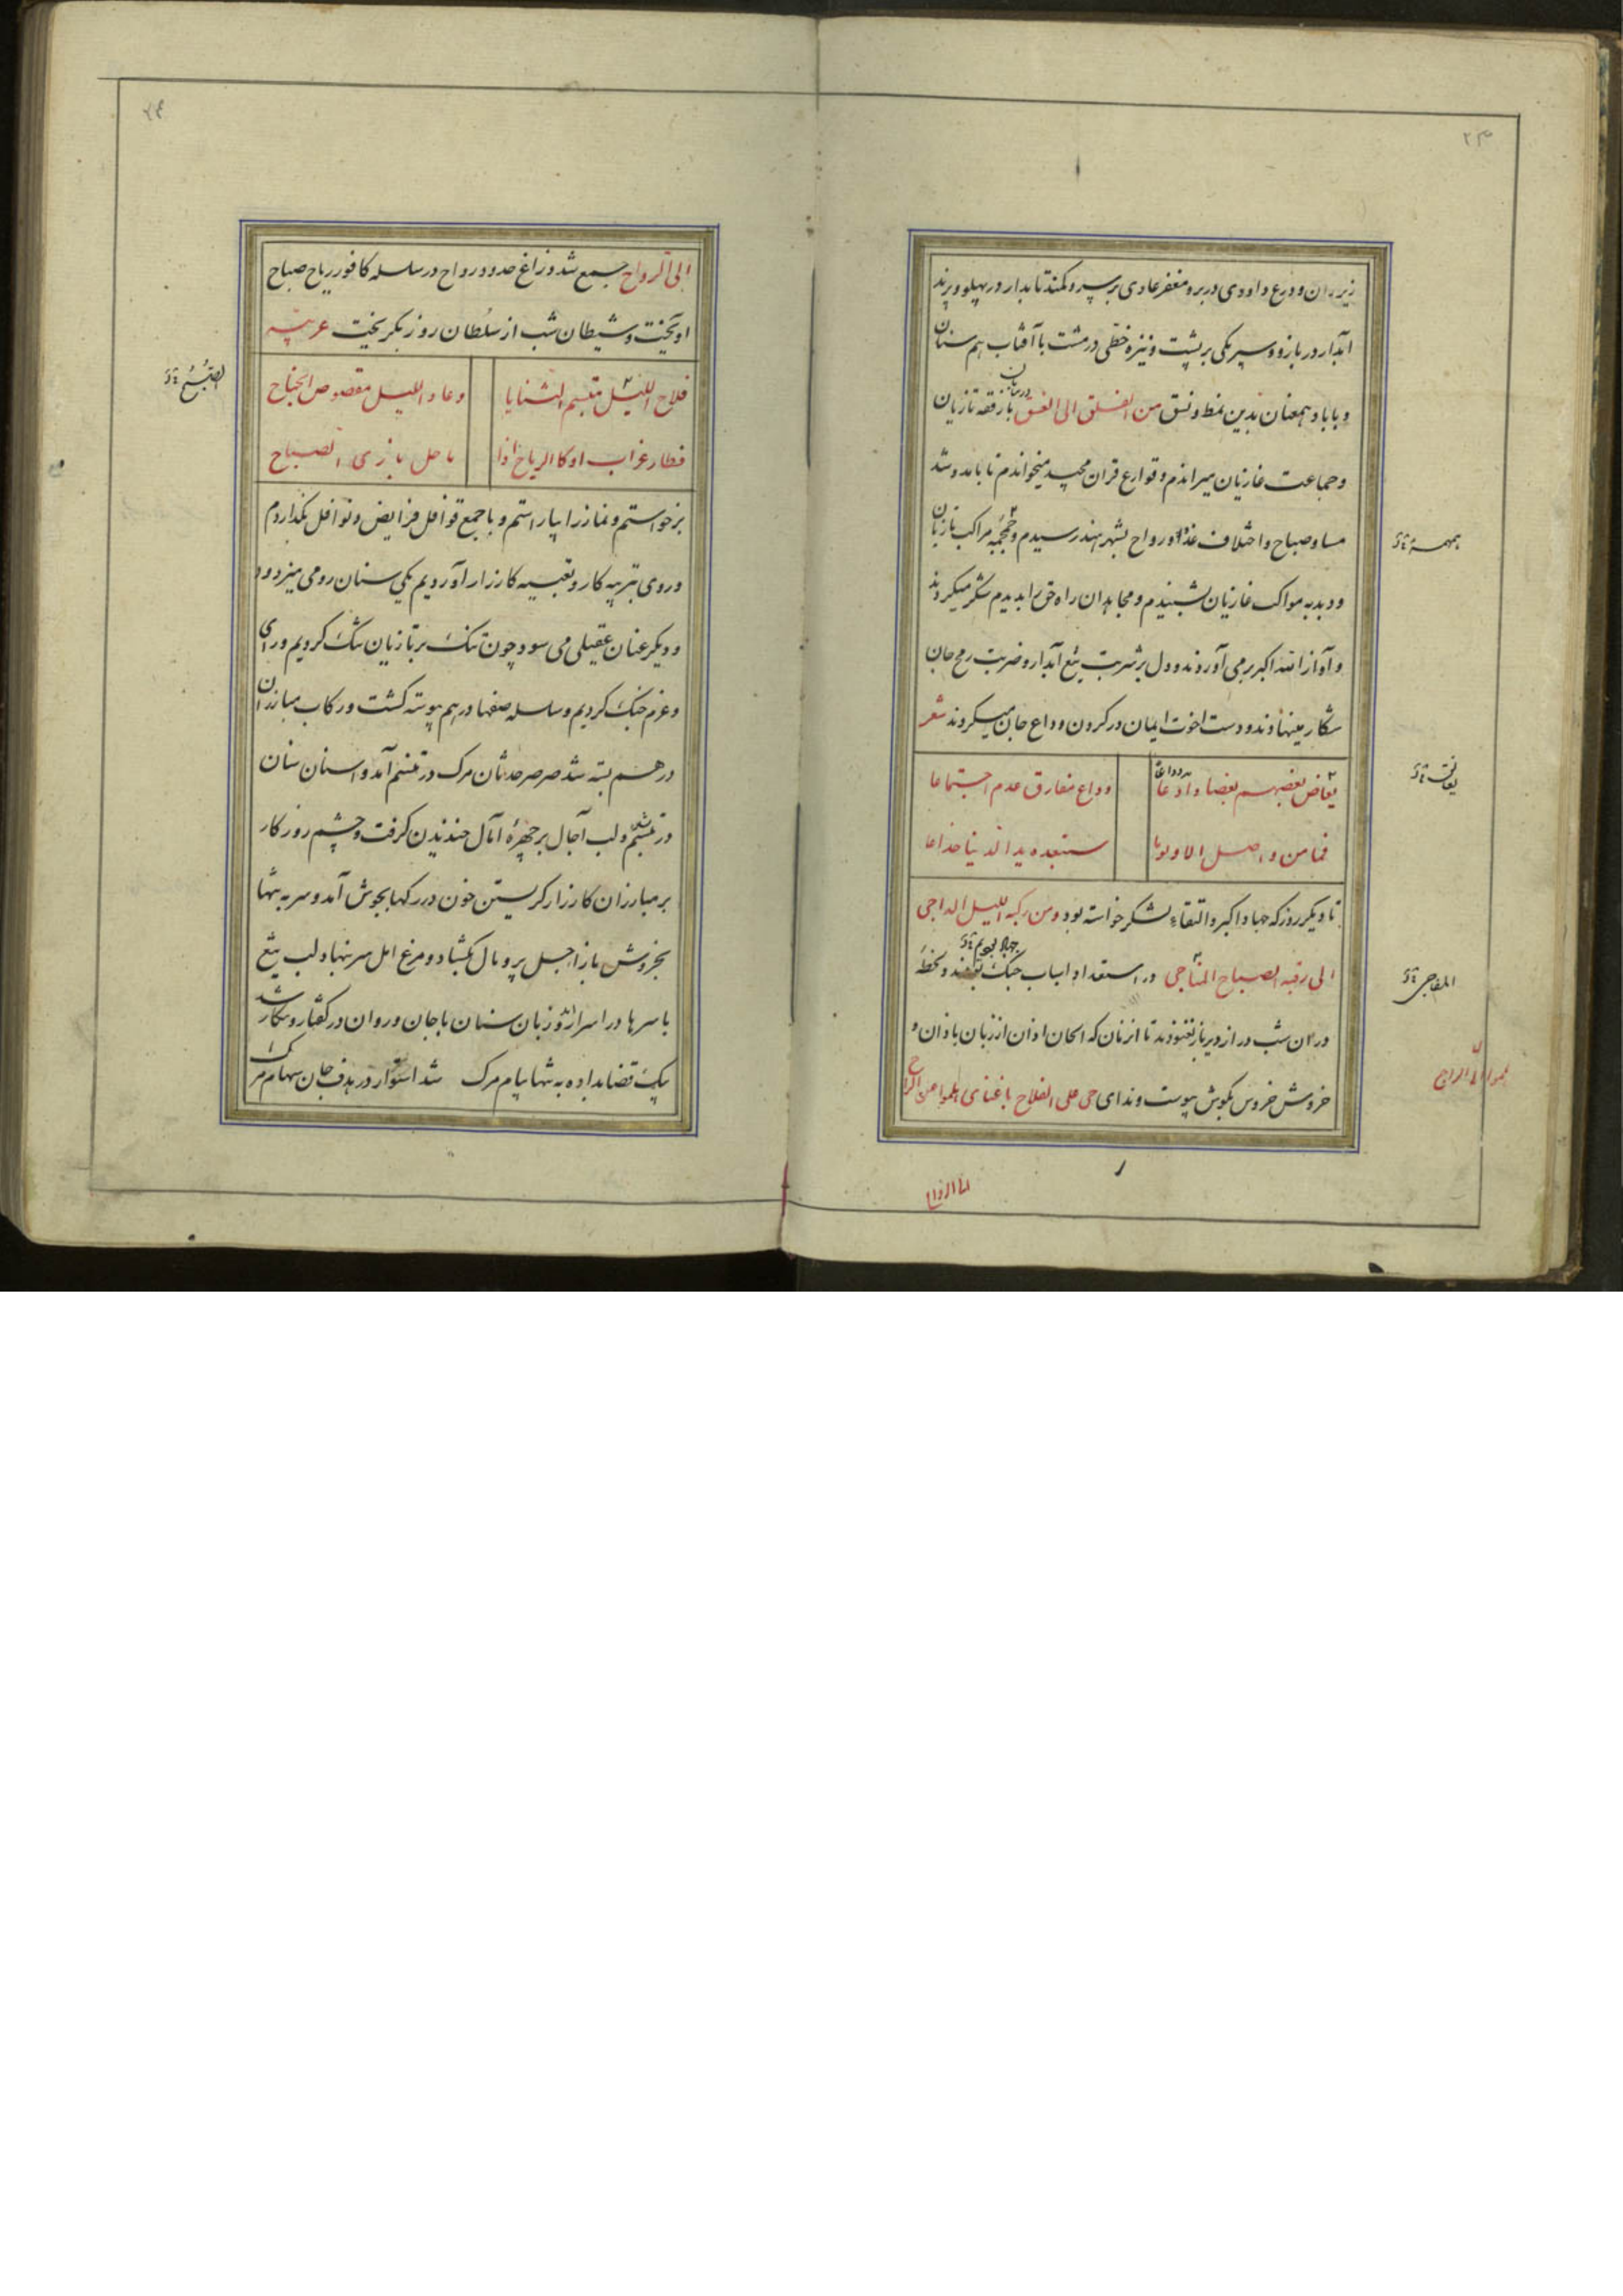 ۲۳
زیر ران و درع داودی در بر و مغفر عادی بر سر و کمند تابدار در پهلو و پرند
ابدار در بازو و سپر مکی بر پشت و نیزه خطی در مشت با آفتاب هم سنان
و با باد همعنان بدین نمط و نسق من الفلق الی الغسق با رفقه تازیان
و جماعت غازیان میراندم و قوارع قران مجید میخواندم تا بامد و شد
مسا و صباح و اختلاف غدو و رواح بشهر هند رسیدم و حمحمه مراکب تازیان
و دبدبه مواکب غازیان بشنیدم و مجاهدان راه حق را بدیدم شکر میکردند
و آواز الله اکبر برمی آوردند و دل بر شربت تیغ آبدار و ضربت رمح جان
شکار مینهادند و دست اخوت ایمان در کردن وداع جان میکردند شعر
بعضهم بعضا وداعا
وداع مفارق عدم اجتماعا
فما من واصل الا ویوما
ستبعده ید الدنیا خداعا
تا دیکر روز که جهاد اکبر و التقاء لشکر خواسته بود و من رکبه اللیل الداجی
الی رقبه الصباح در استعداد اسباب جنک و لحظه
در ان شب دراز دیرباز نغنودند تا انزمان که الحان اذان از زبان باذان و
خروش خروس بکوش پیوست و ندای حی علی الفلاح با غنای هلموا من الراح
همهمه
یعانق
المفاجی
الی الرواح
۲۴
الی الرواح جمع شد و زاغ حدود رواح در سلسله کافور ریاح صباح
اویخت و شیطان شب از سلطان روز بکریخت عربیه
فلاح اللیل مبتسم الثنایا
وعاد اللیل مقصوص الجناح
فطار غراب اوکار الریاح اذا
ما حل بازی الصباح
الصبح
برخواستم و نماز را بیاراستم و با جمع قوافل فرایض و نوافل بکذاردم
و روی بتربیه کار و تعبیه کارزار آوردیم یکی سنان رومی میزدود
و دیکر عنان عقیلی می سود چون تنک بر تازیان تنک کردیم و رای
و عزم جنک کردیم و سلسله صفها در هم پیوسته کشت و رکاب مبارزان
در هم بسته شد صرصر حدثان مرک در تنسم آمد و اسنان سنان
در تبسم شد و لب آجال بر چهرهٔ آمال خندیدن کرفت و چشم روزکار
بر مبارزان کارزار کریستن خون در رکها بجوش آمد و سر به تنها
بخروش باز اجل پر و بال بکشاد و مرغ امل سر بنهاد لب تیغ
با سرها در اسرار و زبان سنان با جان و روان در کفتار و بیکار شد
پیک قضا بداده به تنها پیام مرک شد استوار در هدف جان سهام مرک